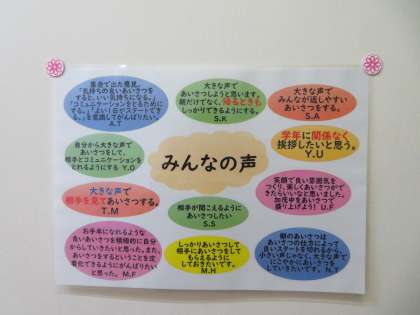 集会で出た意見、
「気持ちの良いあいさつを
すると、いい気持ちになる。」
「コミュニケーションをとるために
する。」「よい1日がスタートでき
る。」を意識してがんばりたい。
A.T
大きな声で
あいさつしようと思います。
朝だけでなく、帰るときも
しっかりできるようにする。
S.K
大きな声で
みんなが返しやすい
あいさつをする。
S.A
自分から大きな声で
あいさつをして、
相手とコミュニケーションを
とれるようにする Y.O
みんなの声
学年に関係なく
挨拶したいと思う。
Y.U
大きな声で
相手を見てあいさつする。
T.M
相手が聞こえるように
あいさつしたい
S.S
笑顔で良い雰囲気を
つくり、楽しくあいさつがで
きたらいいなと思いました。
加茂中をあいさつで
盛り上げよう! U.F
お手本になれるような
良いあいさつを積極的に自分
からしていきたいと思った。また、
あいさつをするということを定
着化できるようにがんばりたい
と思った。 M.F
しっかりあいさつして
相手にあいさつをして
もらえるように
しておきたいです。
M.H
朝のあいさつは
あいさつの仕方によって
良いスタートを切れるから、
小さい声じゃなく、大きな声で
にこやかにあいさつを
していきたいです。 N.T